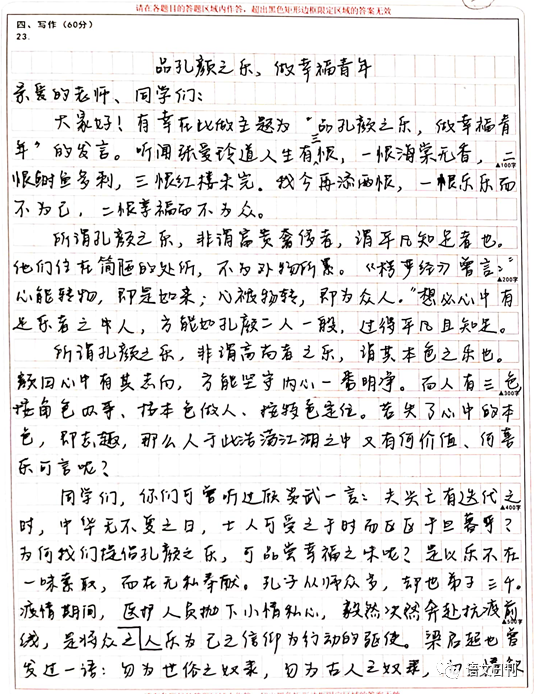 请在各题目的答题区域内作答，超出黑色矩形边框限定区域的答案无效
四、写作（60分）
23.
品孔颜之乐，做幸福青年
亲爱的老师、同学们：
大家好！有幸在此做主题为“品孔颜之乐，做幸福青
年”的发言。听闻张爱玲道人生有三恨，一恨海棠无香，二
▲100字
恨鲥鱼多刺，三恨红楼未完。我今再添两恨，一恨乐乐而
不为己，二恨享福而不为众。
所谓孔颜之乐，非谓富贵奢侈者，谓平凡知足者也。
他们住在简陋的处所，不为外物所累。《楞严经》曾言：“
▲200字
心能转物，即是如来；心被物转，即为众人。”想必心中有
足乐者之中人，方能如孔颜二人一般，过得平凡且知足。
所谓孔颜之乐，非谓高尚者之乐，谓其本色之乐也。
颜回心中有其志向，方能坚守内心一番明净。而人有三色
▲300字
怯角色四寻、怙本色做人、按特色定位。若失了心中的本
色，即志趣，那么人于此浩荡江湖之中又有何价值、何喜
乐可言呢？
同学们，你们可曾听过一言：夫失亡有迭代之
▲400字
时，中华无不复之日，士人可受之于时而区区于旦暮乎？
为何我们提倡孔颜之乐，可品尝幸福之味呢？是以乐不在
一味索取，而在无私奉献。孔子从师众多，却也弟子三千。
疫情期间，医护人员抛下小情私心，毅然决然奔赴抗疫前
▲500字
线，是将众之人乐为己之信仰为行动的驱使。梁启超也曾
发过一语：勿为世俗之奴隶，勿为古人之奴隶，勿
语文日刊